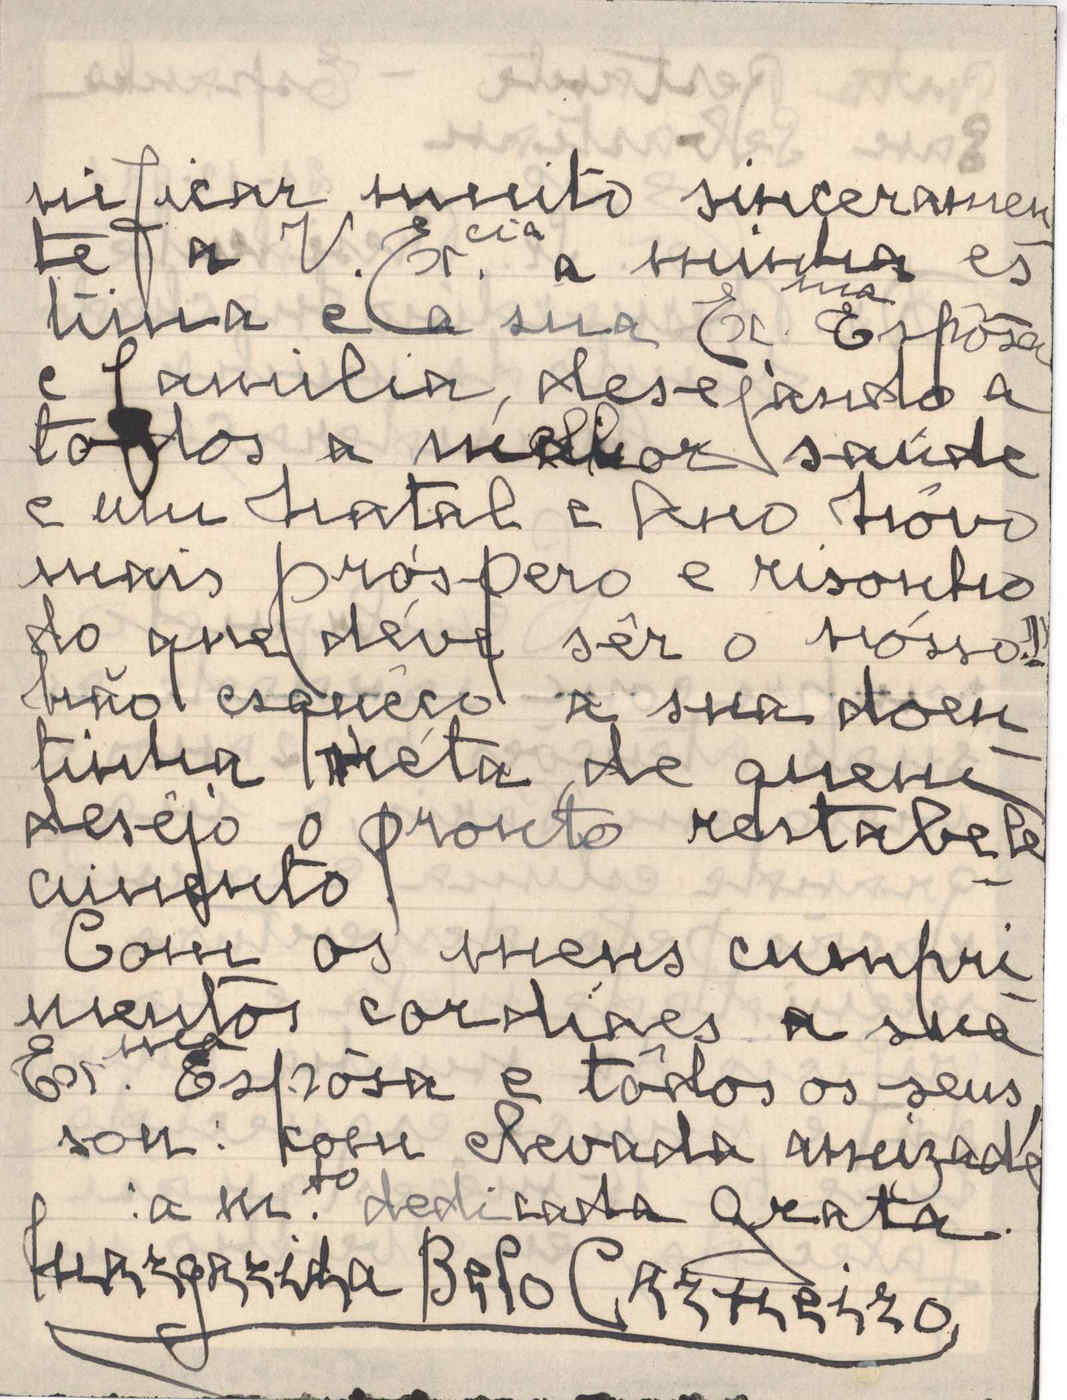 nificar muito sinceramen
te a V. Ex.cia a minha es
tima e a sua Ex.ma Espôsa
e familia, desejando a
todos a melhor saúde
e um Natal e Ano Nôvo
mais próspero e risonho
do que déve sêr o nósso!!
Não esquêço a sua doen
tinha néta, de quem
desêjo o pronto restabele
cimento.
Com os meus cumpri
mentos cordiaes a sua
Ex.ma Espôsa e tôdos os seus,
sou: com elevada amizade
:a m.to dedicada grata.
Margarida Belo Carneiro,